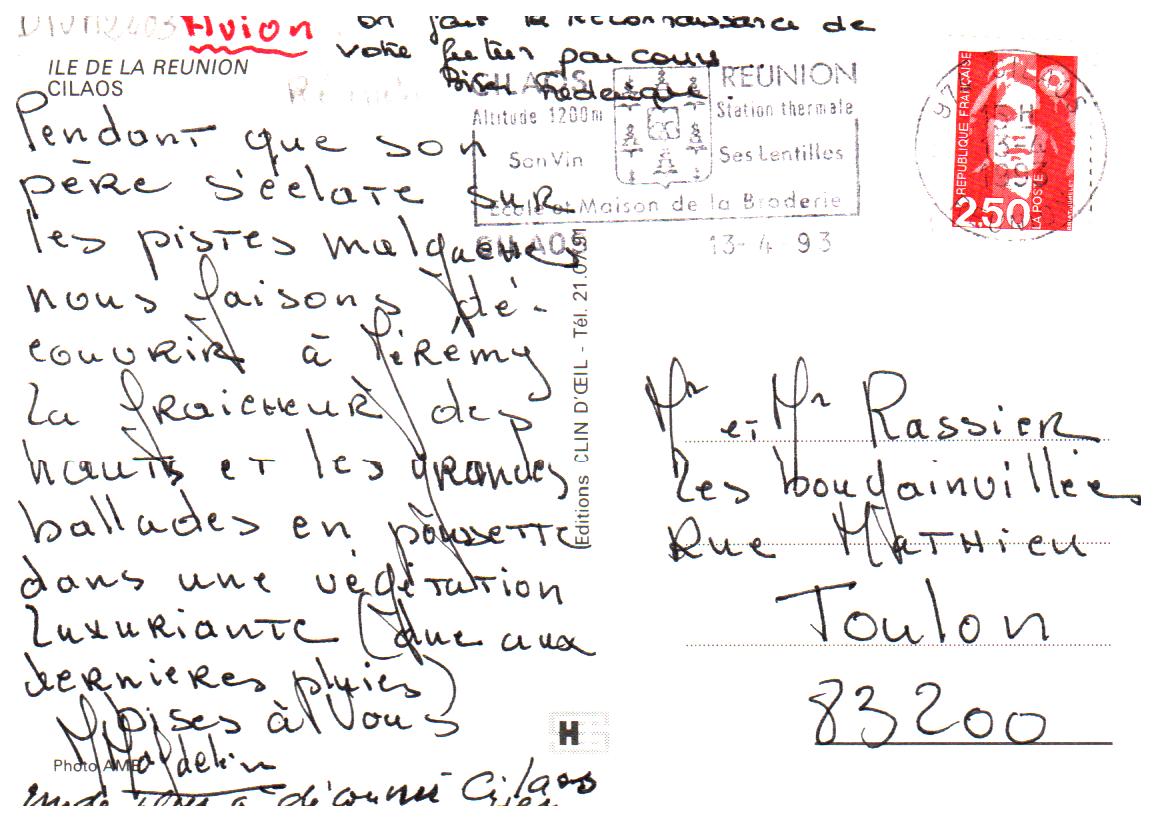 Avion
on fait la reconnaissance de
votre futur parcours
Bises Frédérique
ILE DE LA REUNION
CILAOS
Pendant que son
père s'éclate sur
les pistes malgaches
nous faisons dé-
couvrir à Jérémy
la fraicheur des
hauts et les grandes
ballades en poussette
dans une végétation
luxuriante (due aux
dernieres pluies)
Bises à Vous
Photo AMB
Cilaos
Editions CLIN D'ŒIL - Tél. 21.07.91
CILAOS
REUNION
Altitude 1200m
Station thermale
Son Vin
Ses Lentilles
Ecole et Maison de la Broderie
CILAOS
13-4-93
REPUBLIQUE FRANÇAISE
2,50
LA POSTE
Mr et Mr Rassier
Les bougainvillées
Rue Mathieu
Toulon
83200
H